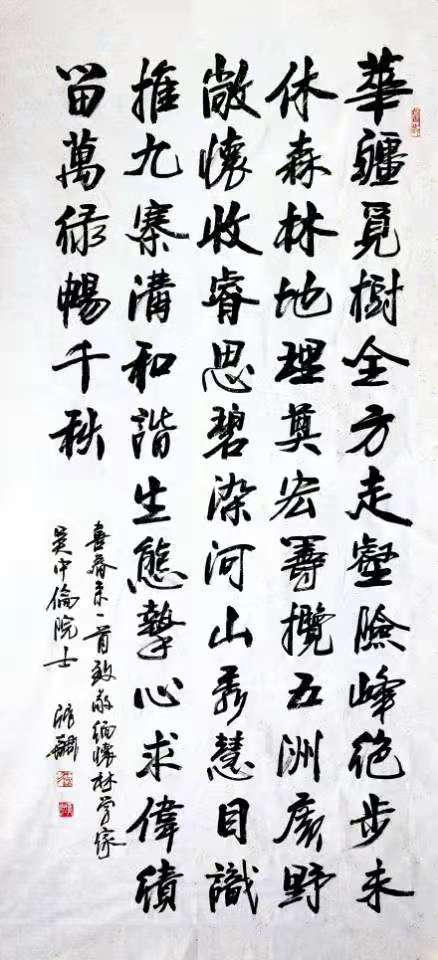 華疆覓樹全方走壑險峰絕步未
休森林地理奠宏籌攬五洲廣野
敞懷收睿思碧染河山秀慧目識
推九寨溝和諧生態摯心求偉績
留萬綠暢千秋
喜春來一首致敬緬懷林學家
吳中倫院士